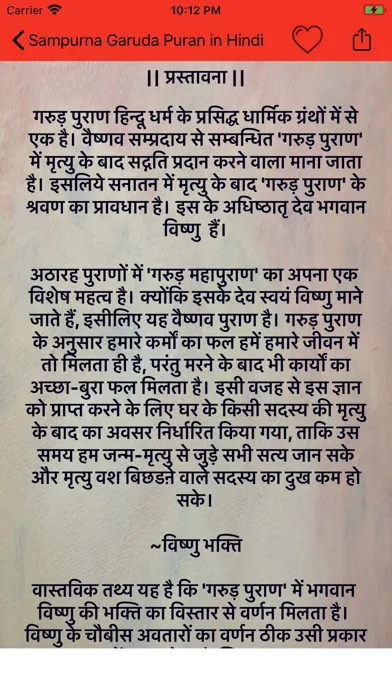 Carrier 10:12 PM
Sampurna Garuda Puran in Hindi
|| प्रस्तावना ||
गरुड़ पुराण हिन्दू धर्म के प्रसिद्ध धार्मिक ग्रंथों में से
एक है। वैष्णव सम्प्रदाय से सम्बन्धित 'गरुड़ पुराण'
में मृत्यु के बाद सद्गति प्रदान करने वाला माना जाता
है। इसलिये सनातन में मृत्यु के बाद 'गरुड़ पुराण' के
श्रवण का प्रावधान है। इस के अधिष्ठातृ देव भगवान
विष्णु हैं।
अठारह पुराणों में 'गरुड़ महापुराण' का अपना एक
विशेष महत्व है। क्योंकि इसके देव स्वयं विष्णु माने
जाते हैं, इसीलिए यह वैष्णव पुराण है। गरुड़ पुराण
के अनुसार हमारे कर्मों का फल हमें हमारे जीवन में
तो मिलता ही है, परंतु मरने के बाद भी कार्यों का
अच्छा-बुरा फल मिलता है। इसी वजह से इस ज्ञान
को प्राप्त करने के लिए घर के किसी सदस्य की मृत्यु
के बाद का अवसर निर्धारित किया गया, ताकि उस
समय हम जन्म-मृत्यु से जुड़े सभी सत्य जान सके
और मृत्यु वश बिछडऩे वाले सदस्य का दुख कम हो
सके।
~विष्णु भक्ति
वास्तविक तथ्य यह है कि 'गरुड़ पुराण' में भगवान
विष्णु की भक्ति का विस्तार से वर्णन मिलता है।
विष्णु के चौबीस अवतारों का वर्णन ठीक उसी प्रकार